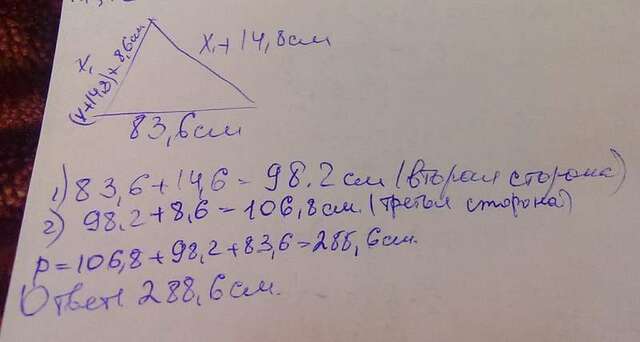 x + 14,8см
x
(x+14,8) + 8,6см
83,6см
1) 83,6 + 14,6 = 98.2 см (вторая сторона)
2) 98,2 + 8,6 = 106,8 см. (третья сторона)
P = 106,8 + 98,2 + 83,6 = 288,6 см.
Ответ: 288,6 см.